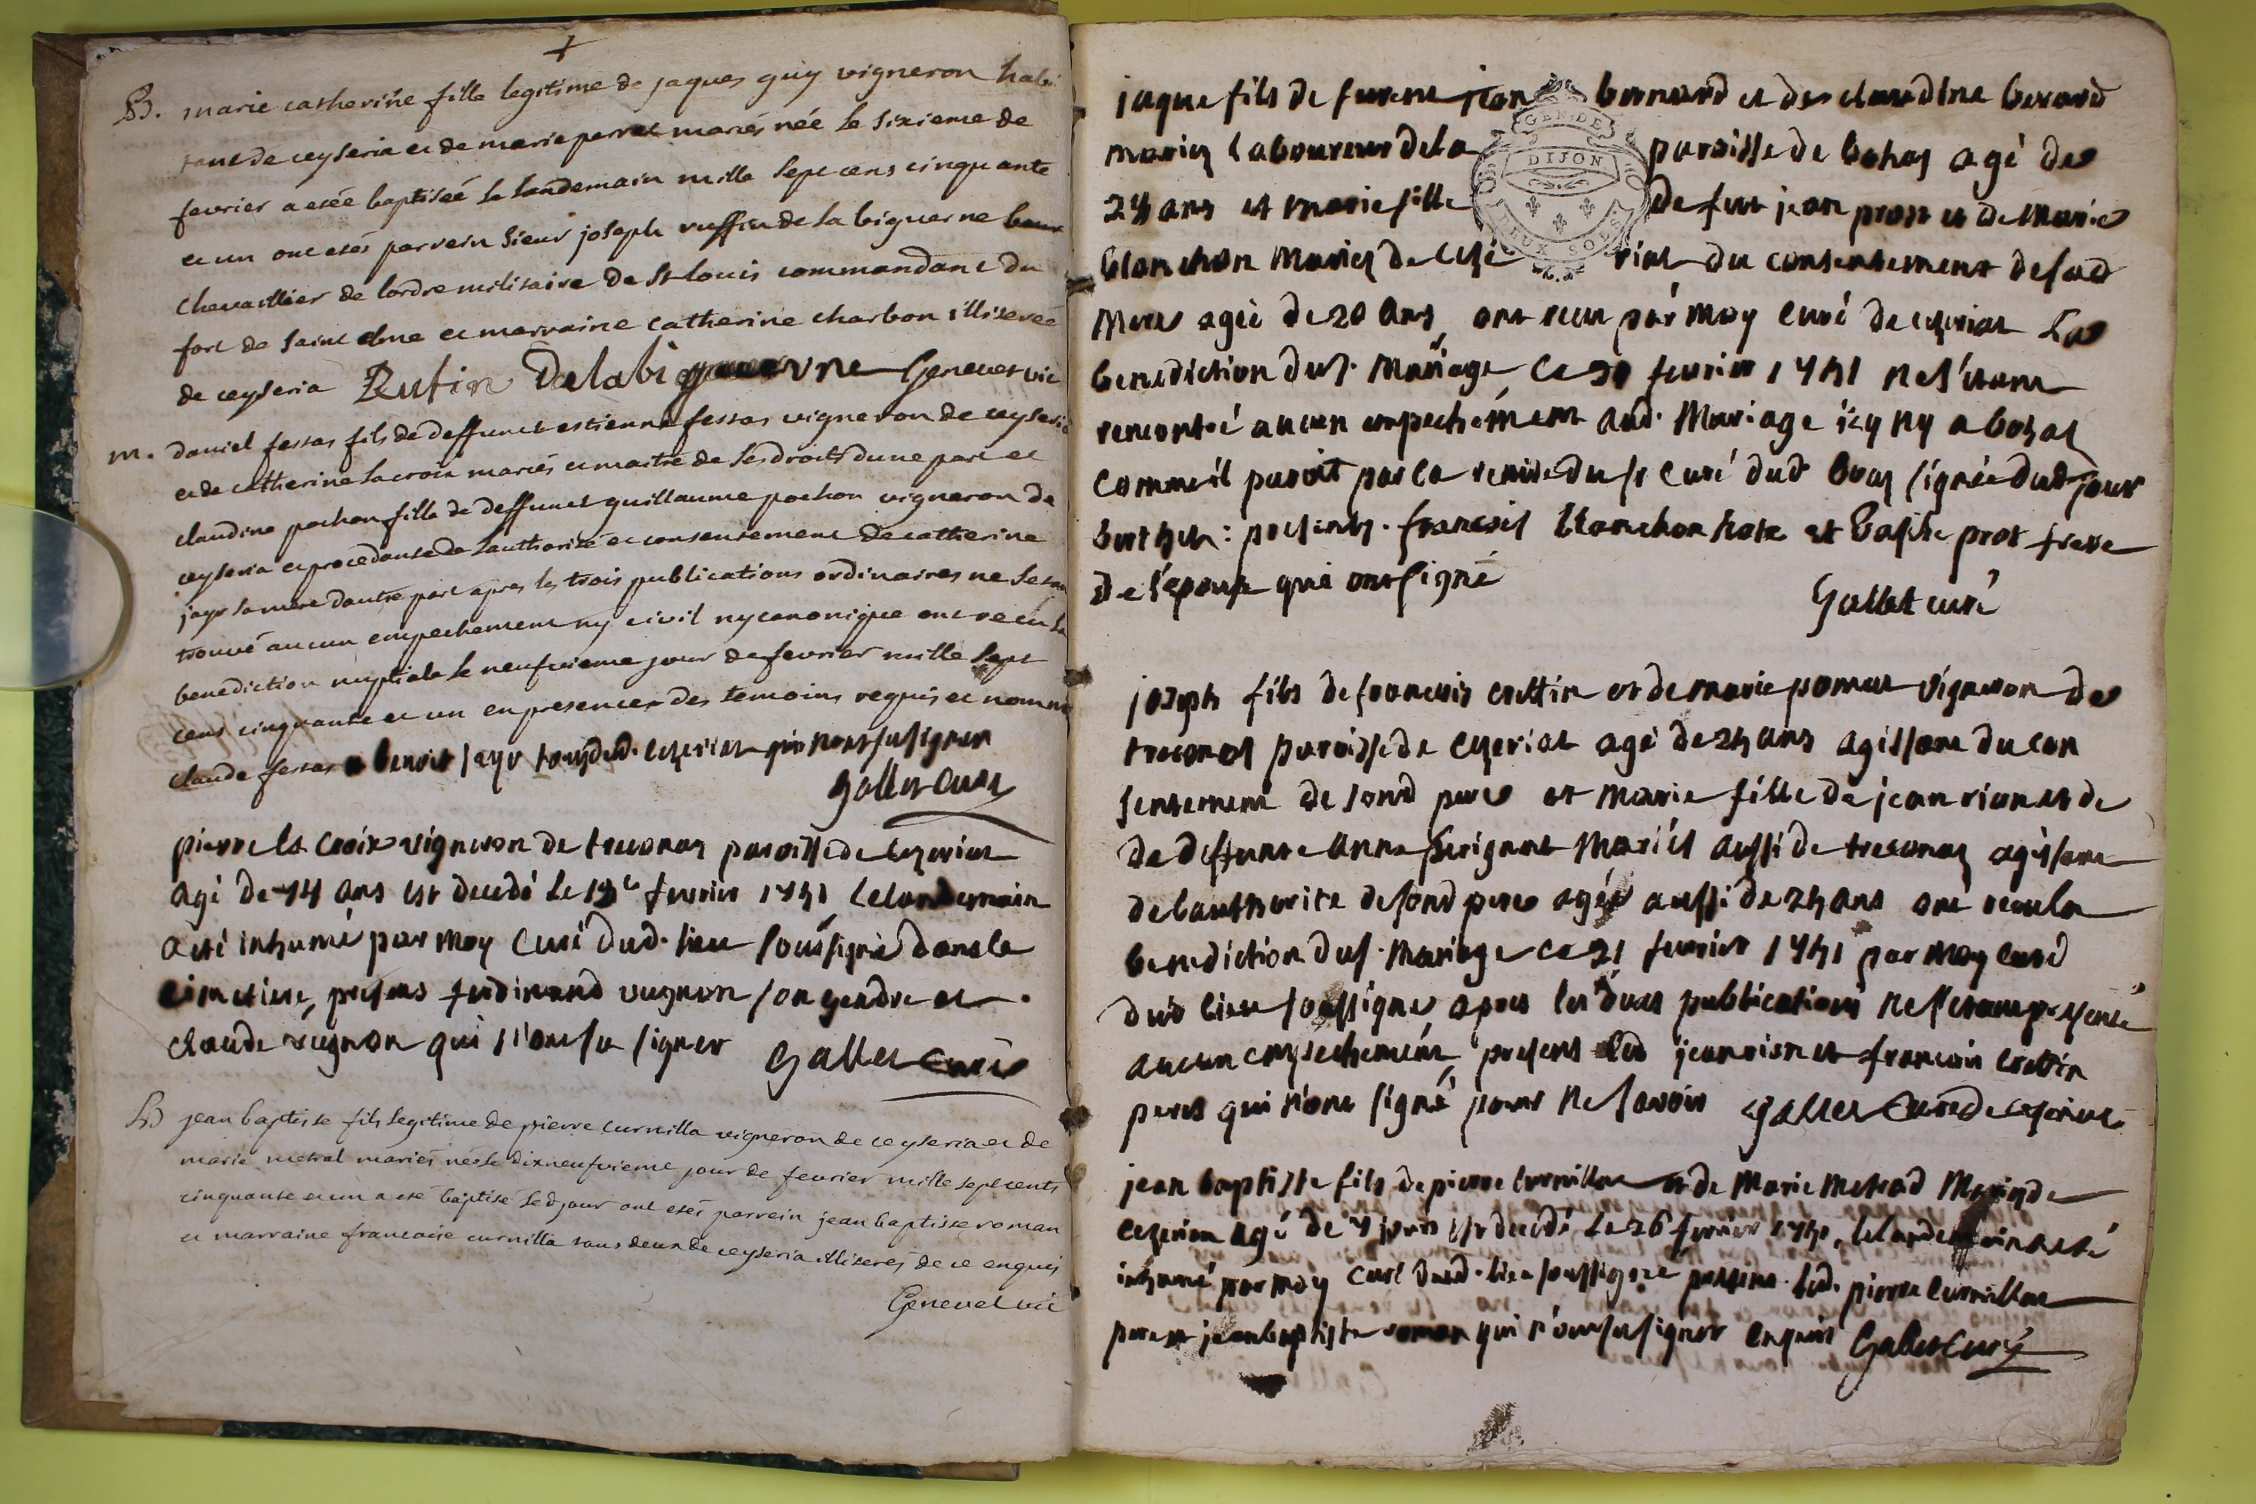 +
B. marie catherine fille legitime de jaques guy vigneron habi
tant de ceyseria et de marie perret mariés née le sixieme de
fevrier a estée baptiséé le landemain mille sept cens cinquante
et un ont estés parrein sieur joseph ruffin de la biguerne
chevaillier de lordre militaire de st louis commandant du
fort de saint elme et marraine catherine charbon illiteree
de ceyseria Rufin Delabi Genevet vic
m. daniel fessas fils de deffunct estienne fessas vigneron de ceyseria
et de catherine lacroix mariés et maitre de ses droits dune part et
claudine pochon fille de deffunct guillaume pochon vigneron de
ceyseria et procedante de lauthorité et consentement de catherine
jayr sa mere dautre part apres les trois publications ordinaires ne sestant
trouvé aucun empechement ny civil ny canonique ont recu la
benediction nuptiale le neufvieme jour de fevrier mille sept
cens cinquante et un en presences des temoins requis et nommé
claude fessas benoit jayr tous dud. cezeriat qui nont su signer
Gallet curé
pierre la croix vigneron de treconas paroisse de cezeriat
agé de 74 ans est decedé le fevrier 1751 le landemain
a été inhumé par moy curé dud. lieu soussigné dans le
cimetiere, presens ferdinand vugnon son gendre et
claude vugnon qui n'ont su signer Gallet curé
B jean baptiste fils legitime de pierre curnilla vigneron de ceyseria et de
marie metral mariés né le dixneufvieme jour de fevrier mille sept cents
cinquante et un a esté baptisé led jour ont estés parrein jean baptiste roman
et marraine francoise curnilla tous deux de ceyseria illiterés de ce enquis
Genevet vic
jaque fils de furent jean bernard et de claudine berard
mariez laboureur de la paroisse de bohas agé de
ans et marie fille de fut jean prost et de marie
blanchon mariez de cezeriat du consentement de sad
mere agée de 20 ans, ont receu par moy curé de cezeriat La
benediction du s. mariage ce fevrier 1751 ne s'étant
rencontré aucun empechement aud. mariage icy ny a bohas
comme il paroit par la remise du sr curé dud signée dud jour
: presents. francois blanchon hote et prost frere
de l'epouse qui ont signé
Gallet curé
jozeph fils de francois crettin et de marie vigneron de
treconas paroisse de cezeriat agé de 25 ans agissant du con
sentement de sond pere et marie fille de jean et de
de deffunte anne perignat mariés aussi de treconas agissant
de l'authorité de sond pere agée aussi de 25 ans ont recu la
benediction du s. mariage ce 21 fevrier 1751 par moy curé
dud lieu soussigné apres les publications ne s'etant presenté
aucun empechement, presens led jean et francois crettin
peres qui n'ont signé pour ne savoir Gallet curé de ceseriat
jean baptiste fils de pierre curnillat et de marie metrad mariez de
cezeriat agé de 7 jours est decedé le 26 fevrier 1751, le landemain a eté
inhumé par moy curé dud. lieu soussigné presens led. pierre curnillat
pere et jean baptiste roman qui n'ont su signer enquis Gallet curé
GEN. DE
DIJON
DEUX SOLS